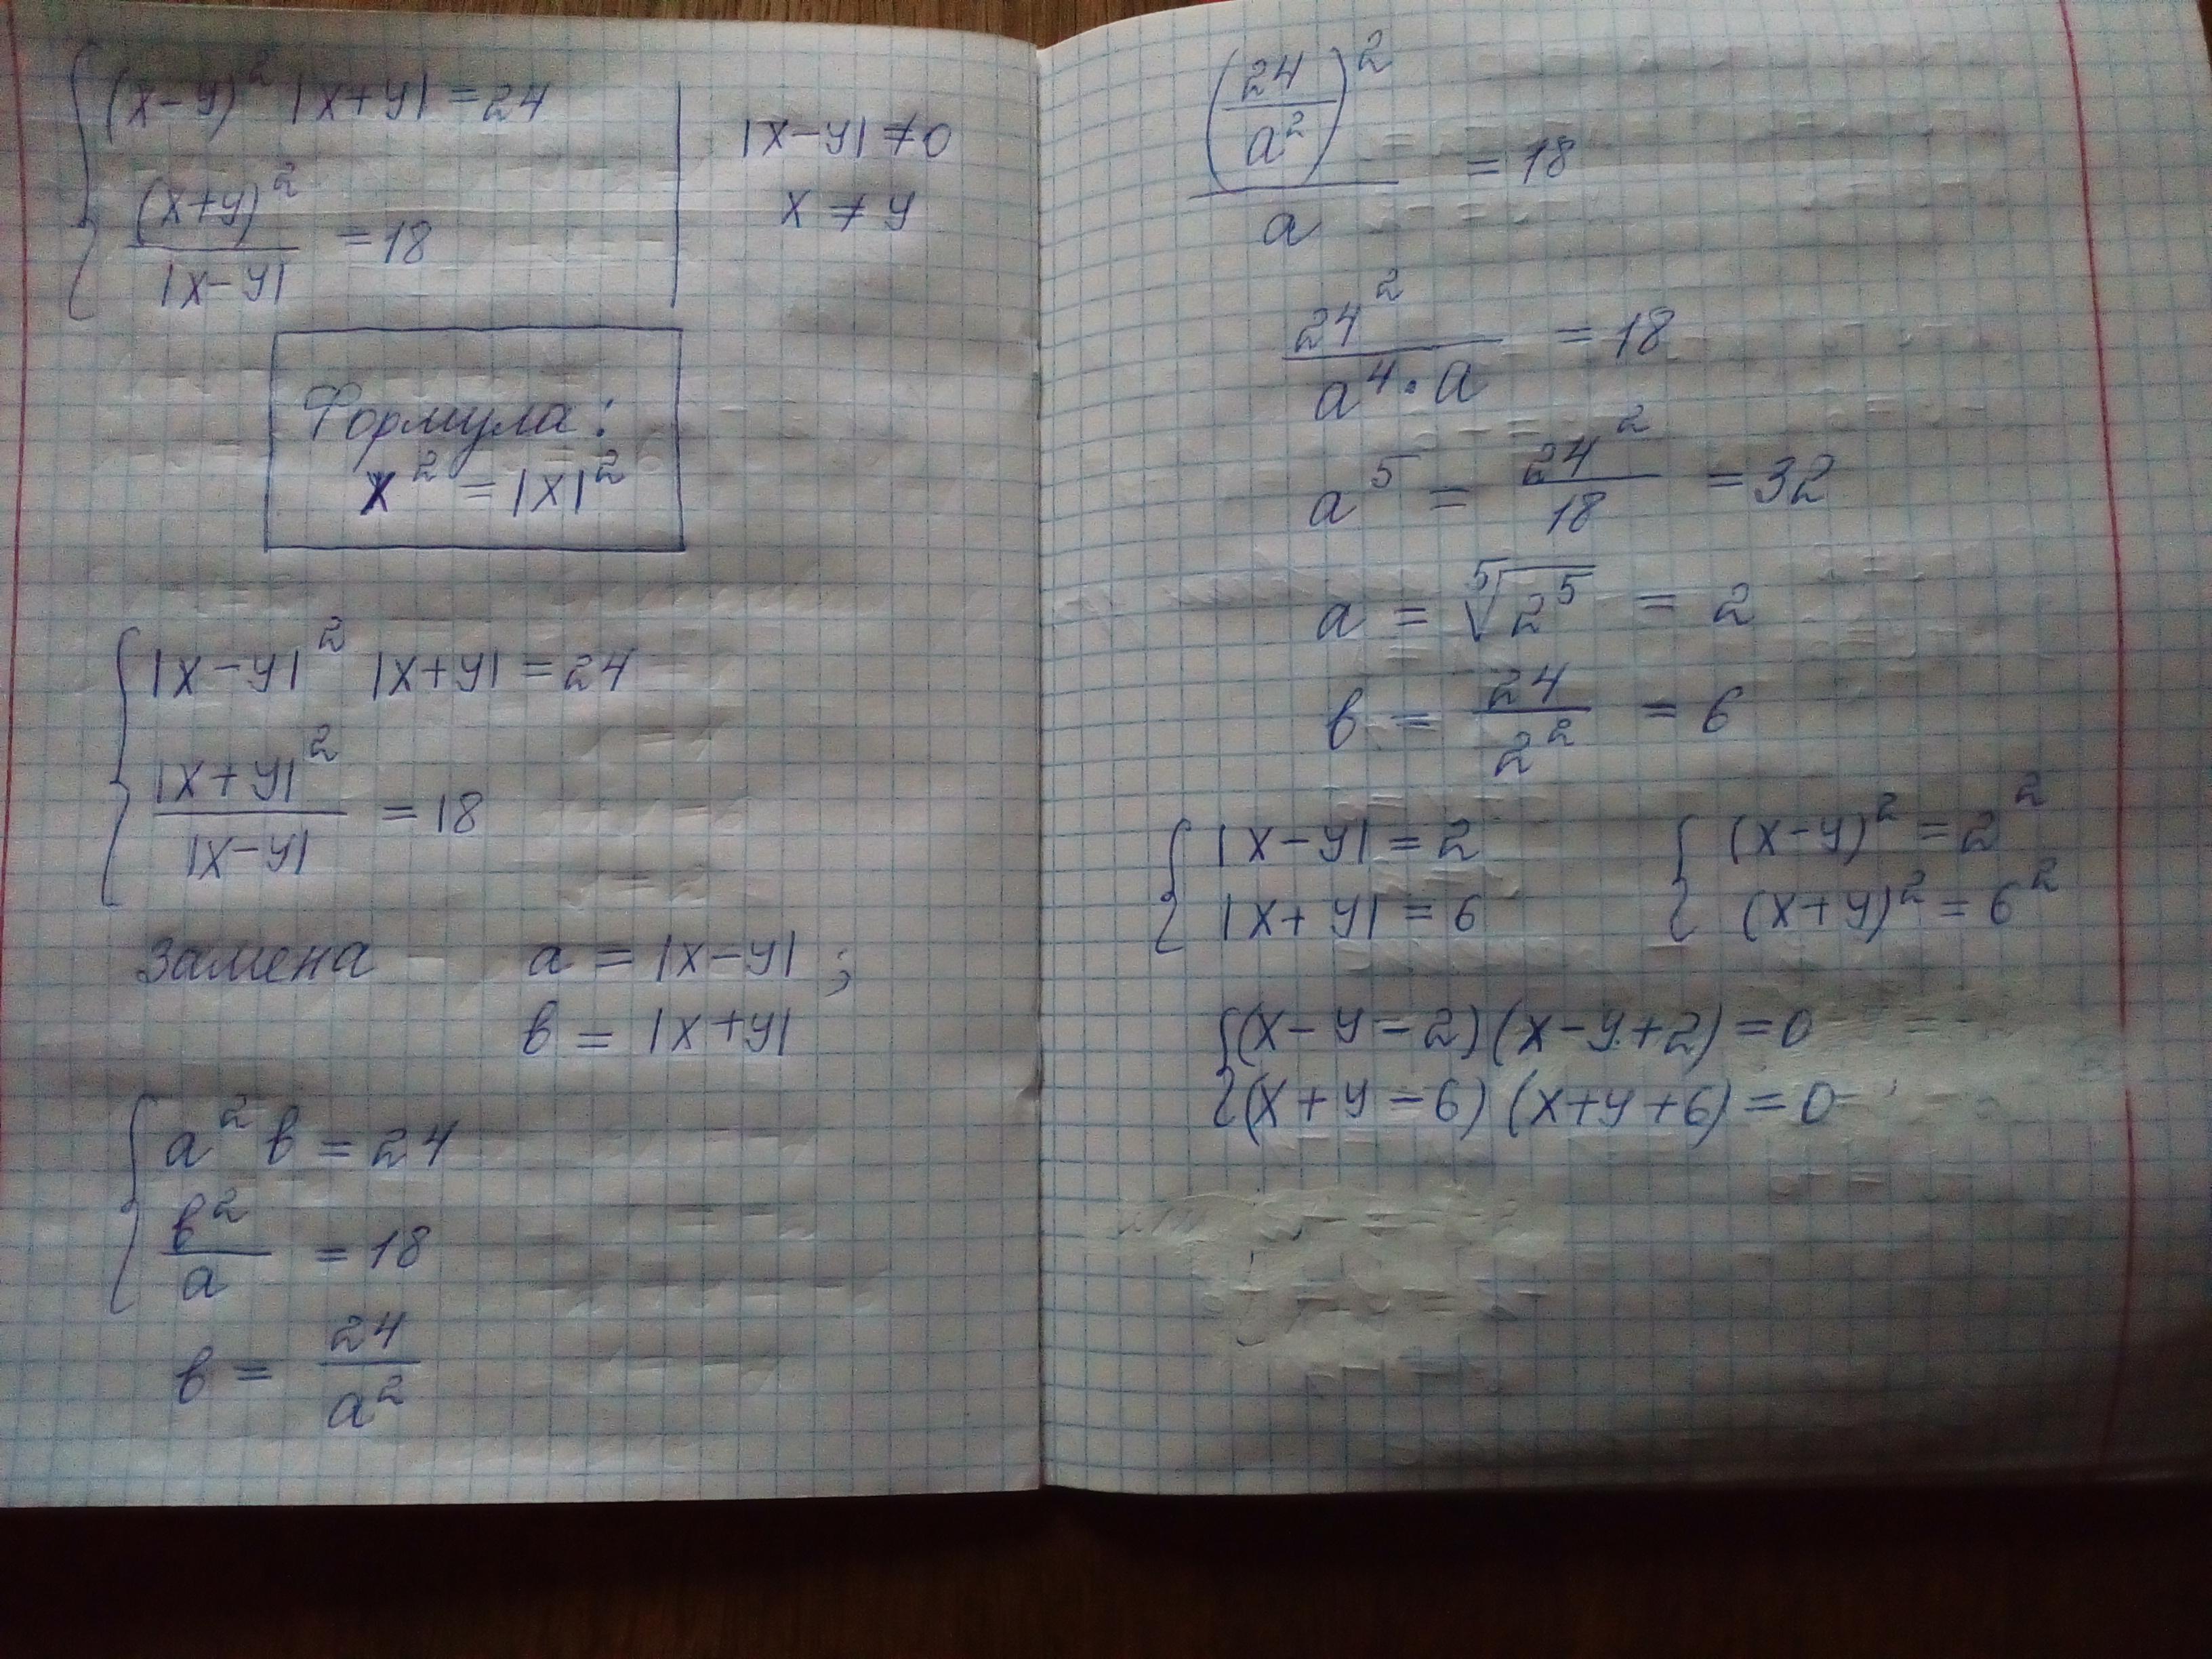 (x-y)² |x+y| = 24
(x+y)² / |x-y| = 18
|x-y| ≠ 0
x ≠ y
Формула:
x² = |x|²
|x-y|² |x+y| = 24
|x+y|² / |x-y| = 18
Замена a = |x-y| ;
b = |x+y|
a² b = 24
b² / a = 18
b = 24 / a²
(24 / a²)² / a = 18
24² / a⁴ · a = 18
a⁵ = 24² / 18 = 32
a = ⁵√2⁵ = 2
b = 24 / 2² = 6
|x-y| = 2
|x+y| = 6
(x-y)² = 2²
(x+y)² = 6²
(x-y-2)(x-y+2) = 0
(x+y-6)(x+y+6) = 0